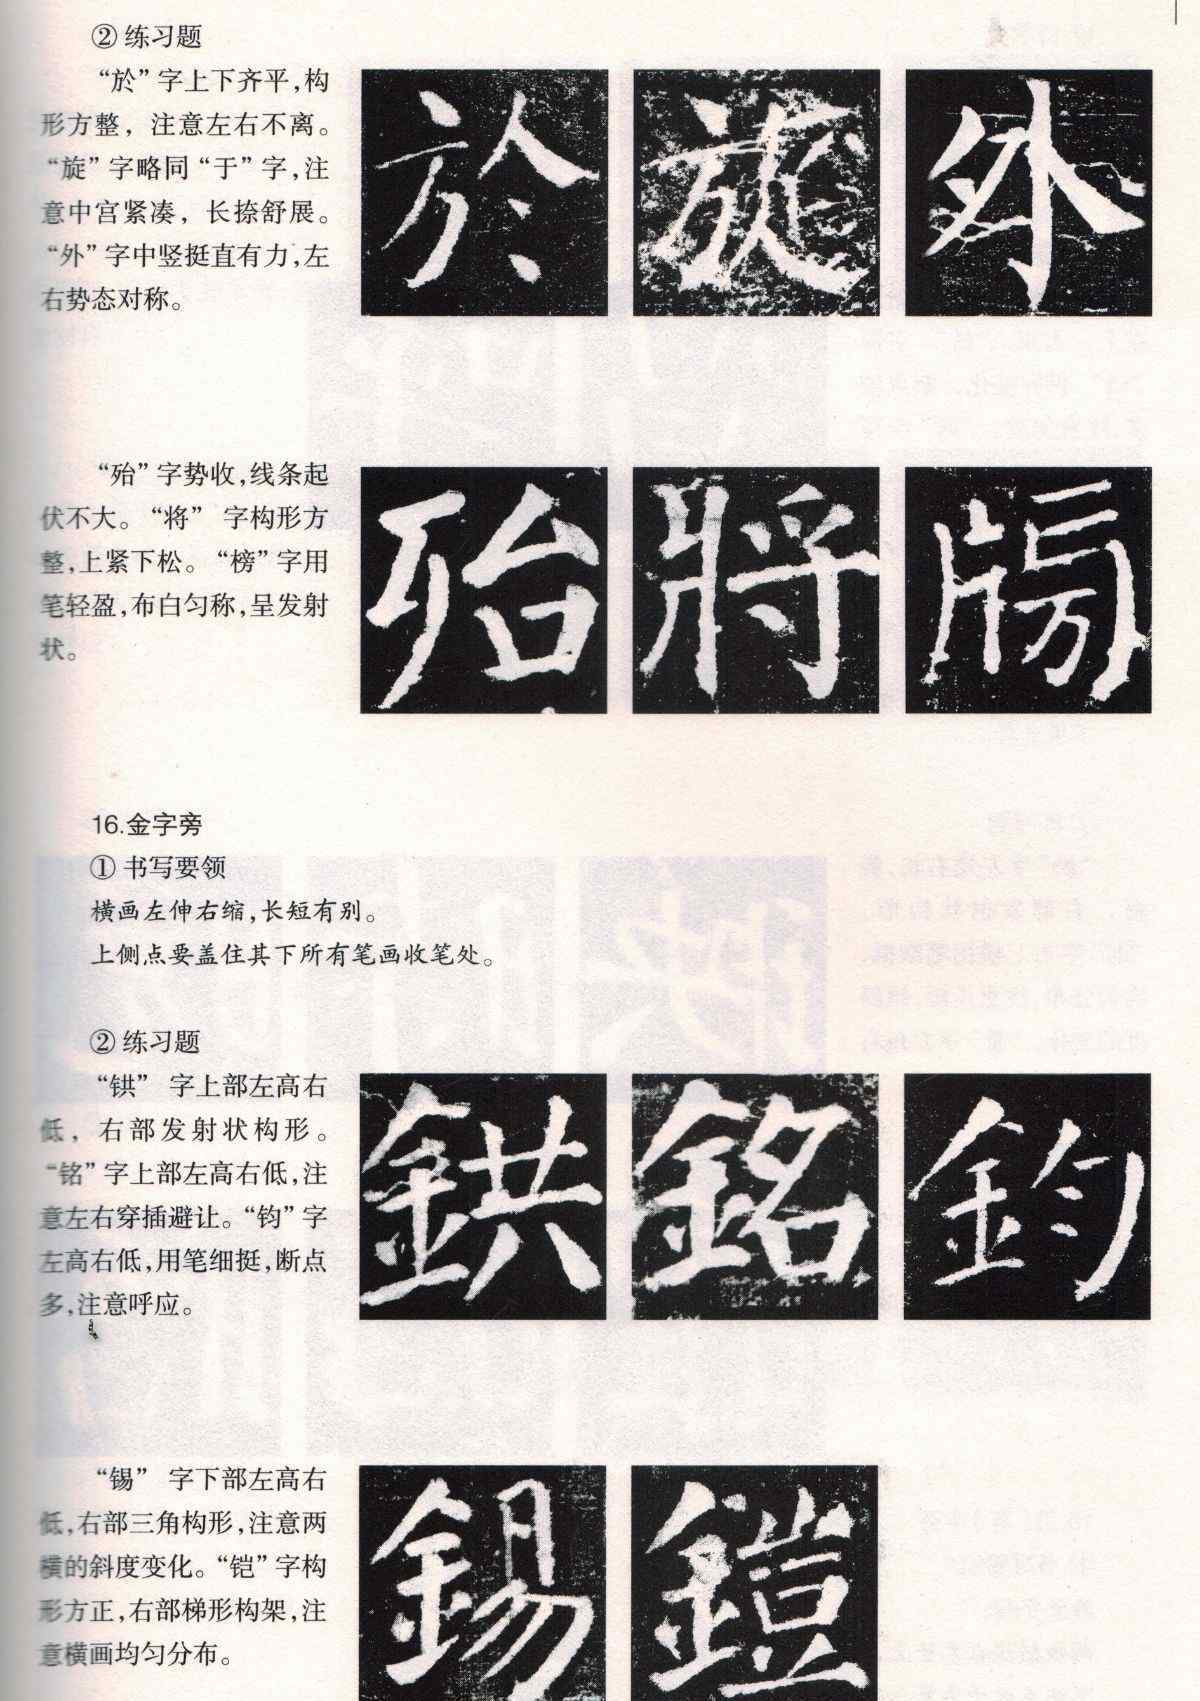 ② 练习题
“於”字上下齐平,构
形方整，注意左右不离。
“旋”字略同“于”字,注
意中宫紧凑，长捺舒展。
“外”字中竖挺直有力,左
右势态对称。
於 旋 外
“殆”字势收,线条起
伏不大。“将” 字构形方
整,上紧下松。“榜”字用
笔轻盈,布白匀称,呈发射
状。
殆 將 牓
16.金字旁
① 书写要领
横画左伸右缩,长短有别。
上侧点要盖住其下所有笔画收笔处。
② 练习题
“𫟹” 字上部左高右
低，右部发射状构形。
“铭”字上部左高右低,注
意左右穿插避让。“钧”字
左高右低,用笔细挺,断点
多,注意呼应。
鉷 銘 鈞
“锡” 字下部左高右
低,右部三角构形,注意两
横的斜度变化。“铠”字构
形方正,右部梯形构架,注
意横画均匀分布。
錫 鎧